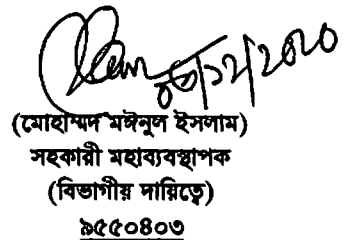 ০৩/১২/২০২০
(মোহাম্মদ মঈনুল ইসলাম)
সহকারী মহাব্যবস্থাপক
(বিভাগীয় দায়িত্বে)
৯৫৫০৪০৩